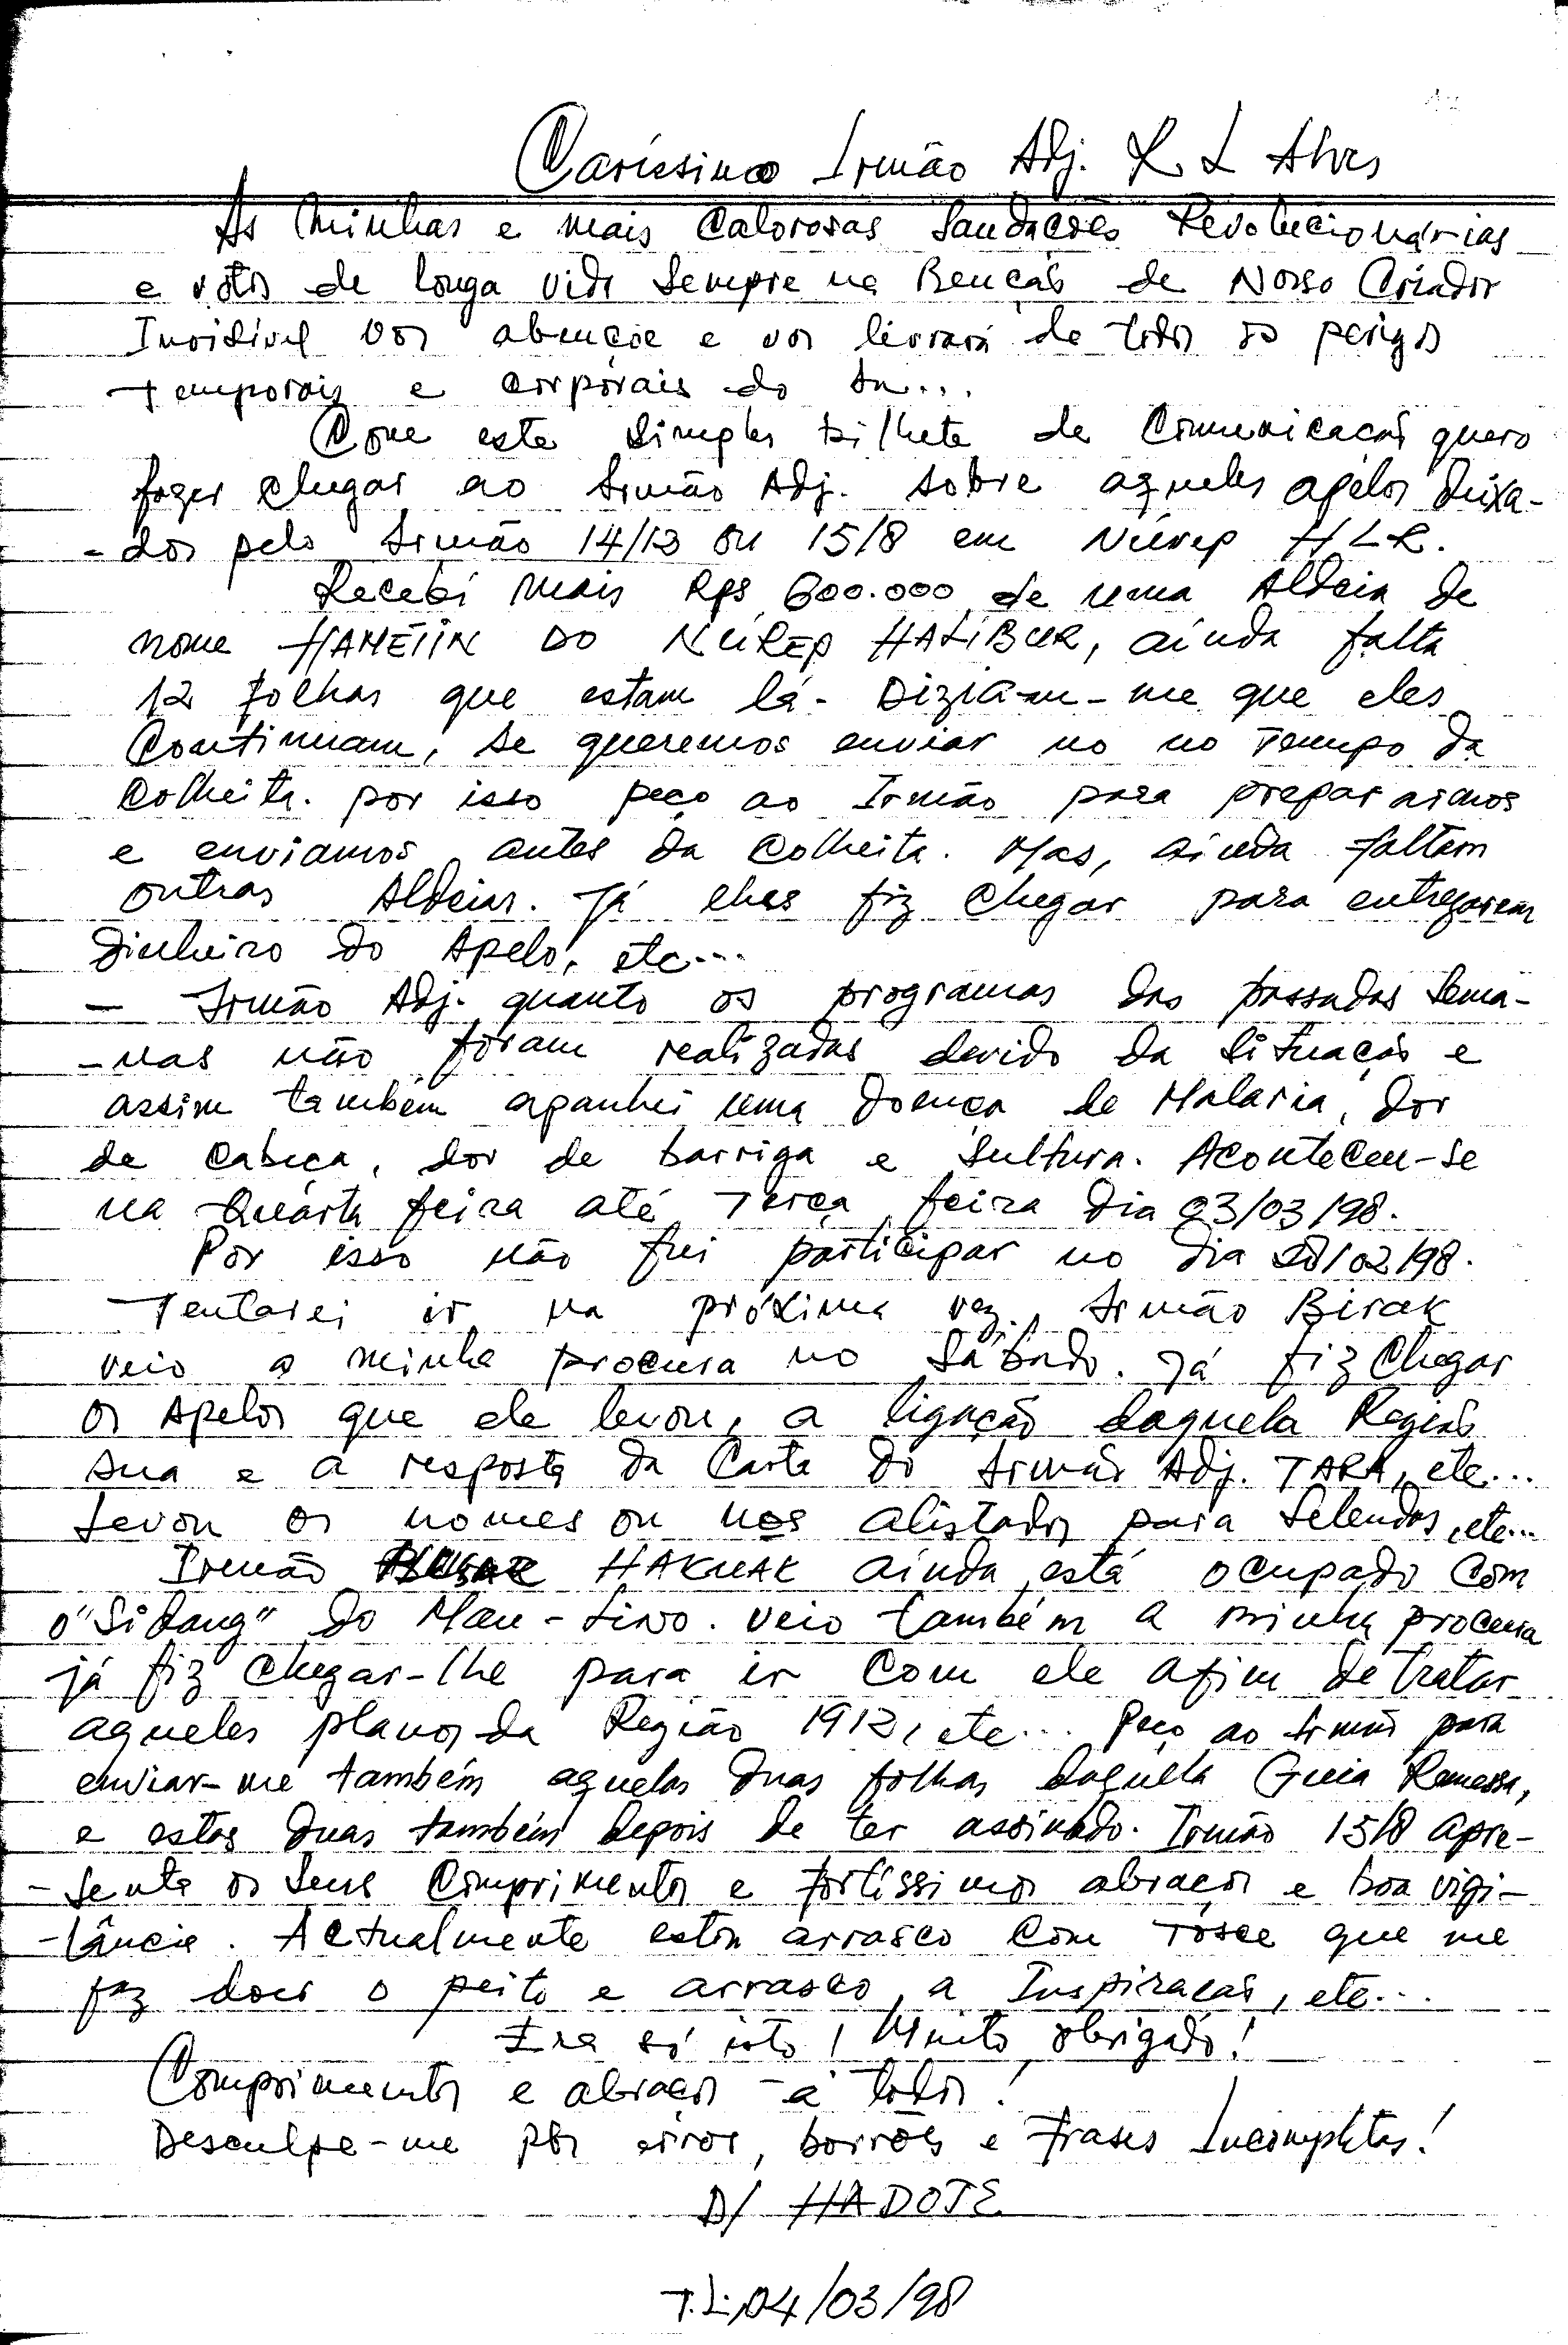 Caríssimo Irmão Adj. L. L Alves
As Minhas e mais Calorosas Saudações Revolucionárias
e votos de longa vida Sempre na Benção de Nosso Criador
Invisível vos abençoe e vos livrará de todos os perigos
Temporais e corporais do
Com este simples bilhete de Comunicação quero
fazer chegar ao Irmão Adj. sobre aqueles apelos deixa-
-dos pelo Irmão 14/13 ou 15/8 em Núrep HLR.
Recebi mais Rps 600.000 de uma Aldeia de
nome HAMÉTIN DO NÚREP HALIBUR, ainda falta
12 folhas que estam lá. Diziam-me que eles
Continuam, se queremos enviar no no Tempo da
Colheita. por isso peço ao Irmão para prepararmos
e enviamos antes da Colheita. Mas, ainda faltam
outras Aldeias. Já lhes fiz chegar para entregarem
Dinheiro do Apelo, etc...
- Irmão Adj. quanto os programas das passadas Sema-
-nas não foram realizadas devido da Situação e
assim também apanhei uma doença de Malaria, dor
de cabeça, dor de barriga e Sultura. Aconteceu-se
na Quárta feira até Terça feira dia 03/03/98.
Por isso não fui participar no dia 28/02/98.
Tentarei ir na próxima vez. Irmão Birak
veio a minha procura no Sábado. Já fiz Chegar
os Apelos que ele levou, a ligação daquela Região
sua e a resposta da Carta do Irmão Adj. TARA, etc...
Levou os nomes ou nos alistados para Selendos, etc...
Irmão HAKUAK ainda está ocupado Com
o "Sidang" do Mau-Lino. Veio também a minha procura
já fiz chegar-lhe para ir Com ele afim de tratar
aqueles planos da Região 1912, etc... Peço ao Irmão para
enviar-me também aquelas duas folhas daquela Guia Remessa,
e estas duas também depois de ter assinado. Irmão 15/8 apre-
-senta os seus Comprimentos e fortíssimos abraços e boa vigi-
-lância. Actualmente estou arrasco Com Tosce que me
faz doer o peito e arrasco a Inspiração, etc...
Era só isto! Muito obrigado!
Comprimentos e abraços á todos!
Desculpe-me por erros, borrões e frases Incompletas!
D/ HADOTE
T.L, 04/03/98